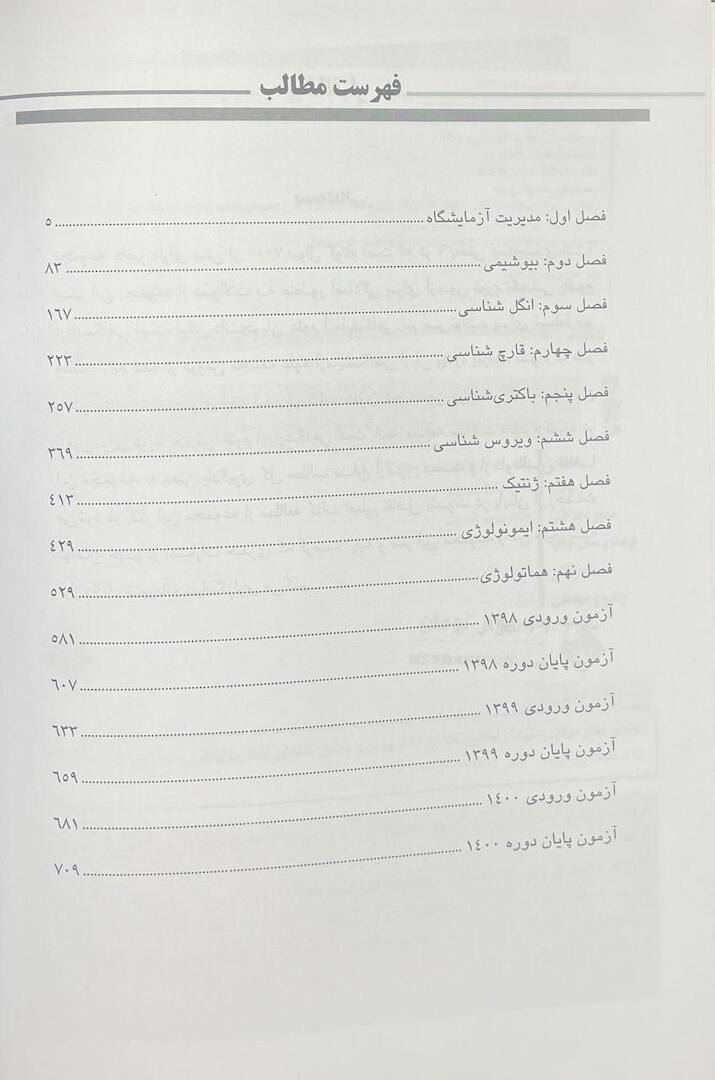 فهرست مطالب
فصل اول: مدیریت آزمایشگاه ........ ۵
فصل دوم: بیوشیمی ........ ۸۳
فصل سوم: انگل شناسی ........ ۱۶۷
فصل چهارم: قارچ شناسی ........ ۲۲۳
فصل پنجم: باکتری‌شناسی ........ ۲۵۷
فصل ششم: ویروس شناسی ........ ۳۶۹
فصل هفتم: ژنتیک ........ ٤۱۳
فصل هشتم: ایمونولوژی ........ ٤۲۹
فصل نهم: هماتولوژی ........ ۵۲۹
آزمون ورودی ۱۳۹۸ ........ ۵۸۱
آزمون پایان دوره ۱۳۹۸ ........ ٦۰۷
آزمون ورودی ۱۳۹۹ ........ ٦۳۳
آزمون پایان دوره ۱۳۹۹ ........ ٦۵۹
آزمون ورودی ۱٤۰۰ ........ ٦۸۱
آزمون پایان دوره ۱٤۰۰ ........ ۷۰۹